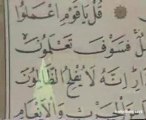 قُلْ يَا قَوْمِ اعْمَلُوا
فَسَوْفَ تَعْلَمُونَ
إِنَّهُ لَا يُفْلِحُ الظَّالِمُونَ
الْحَرْثِ وَالْأَنْعَامِ